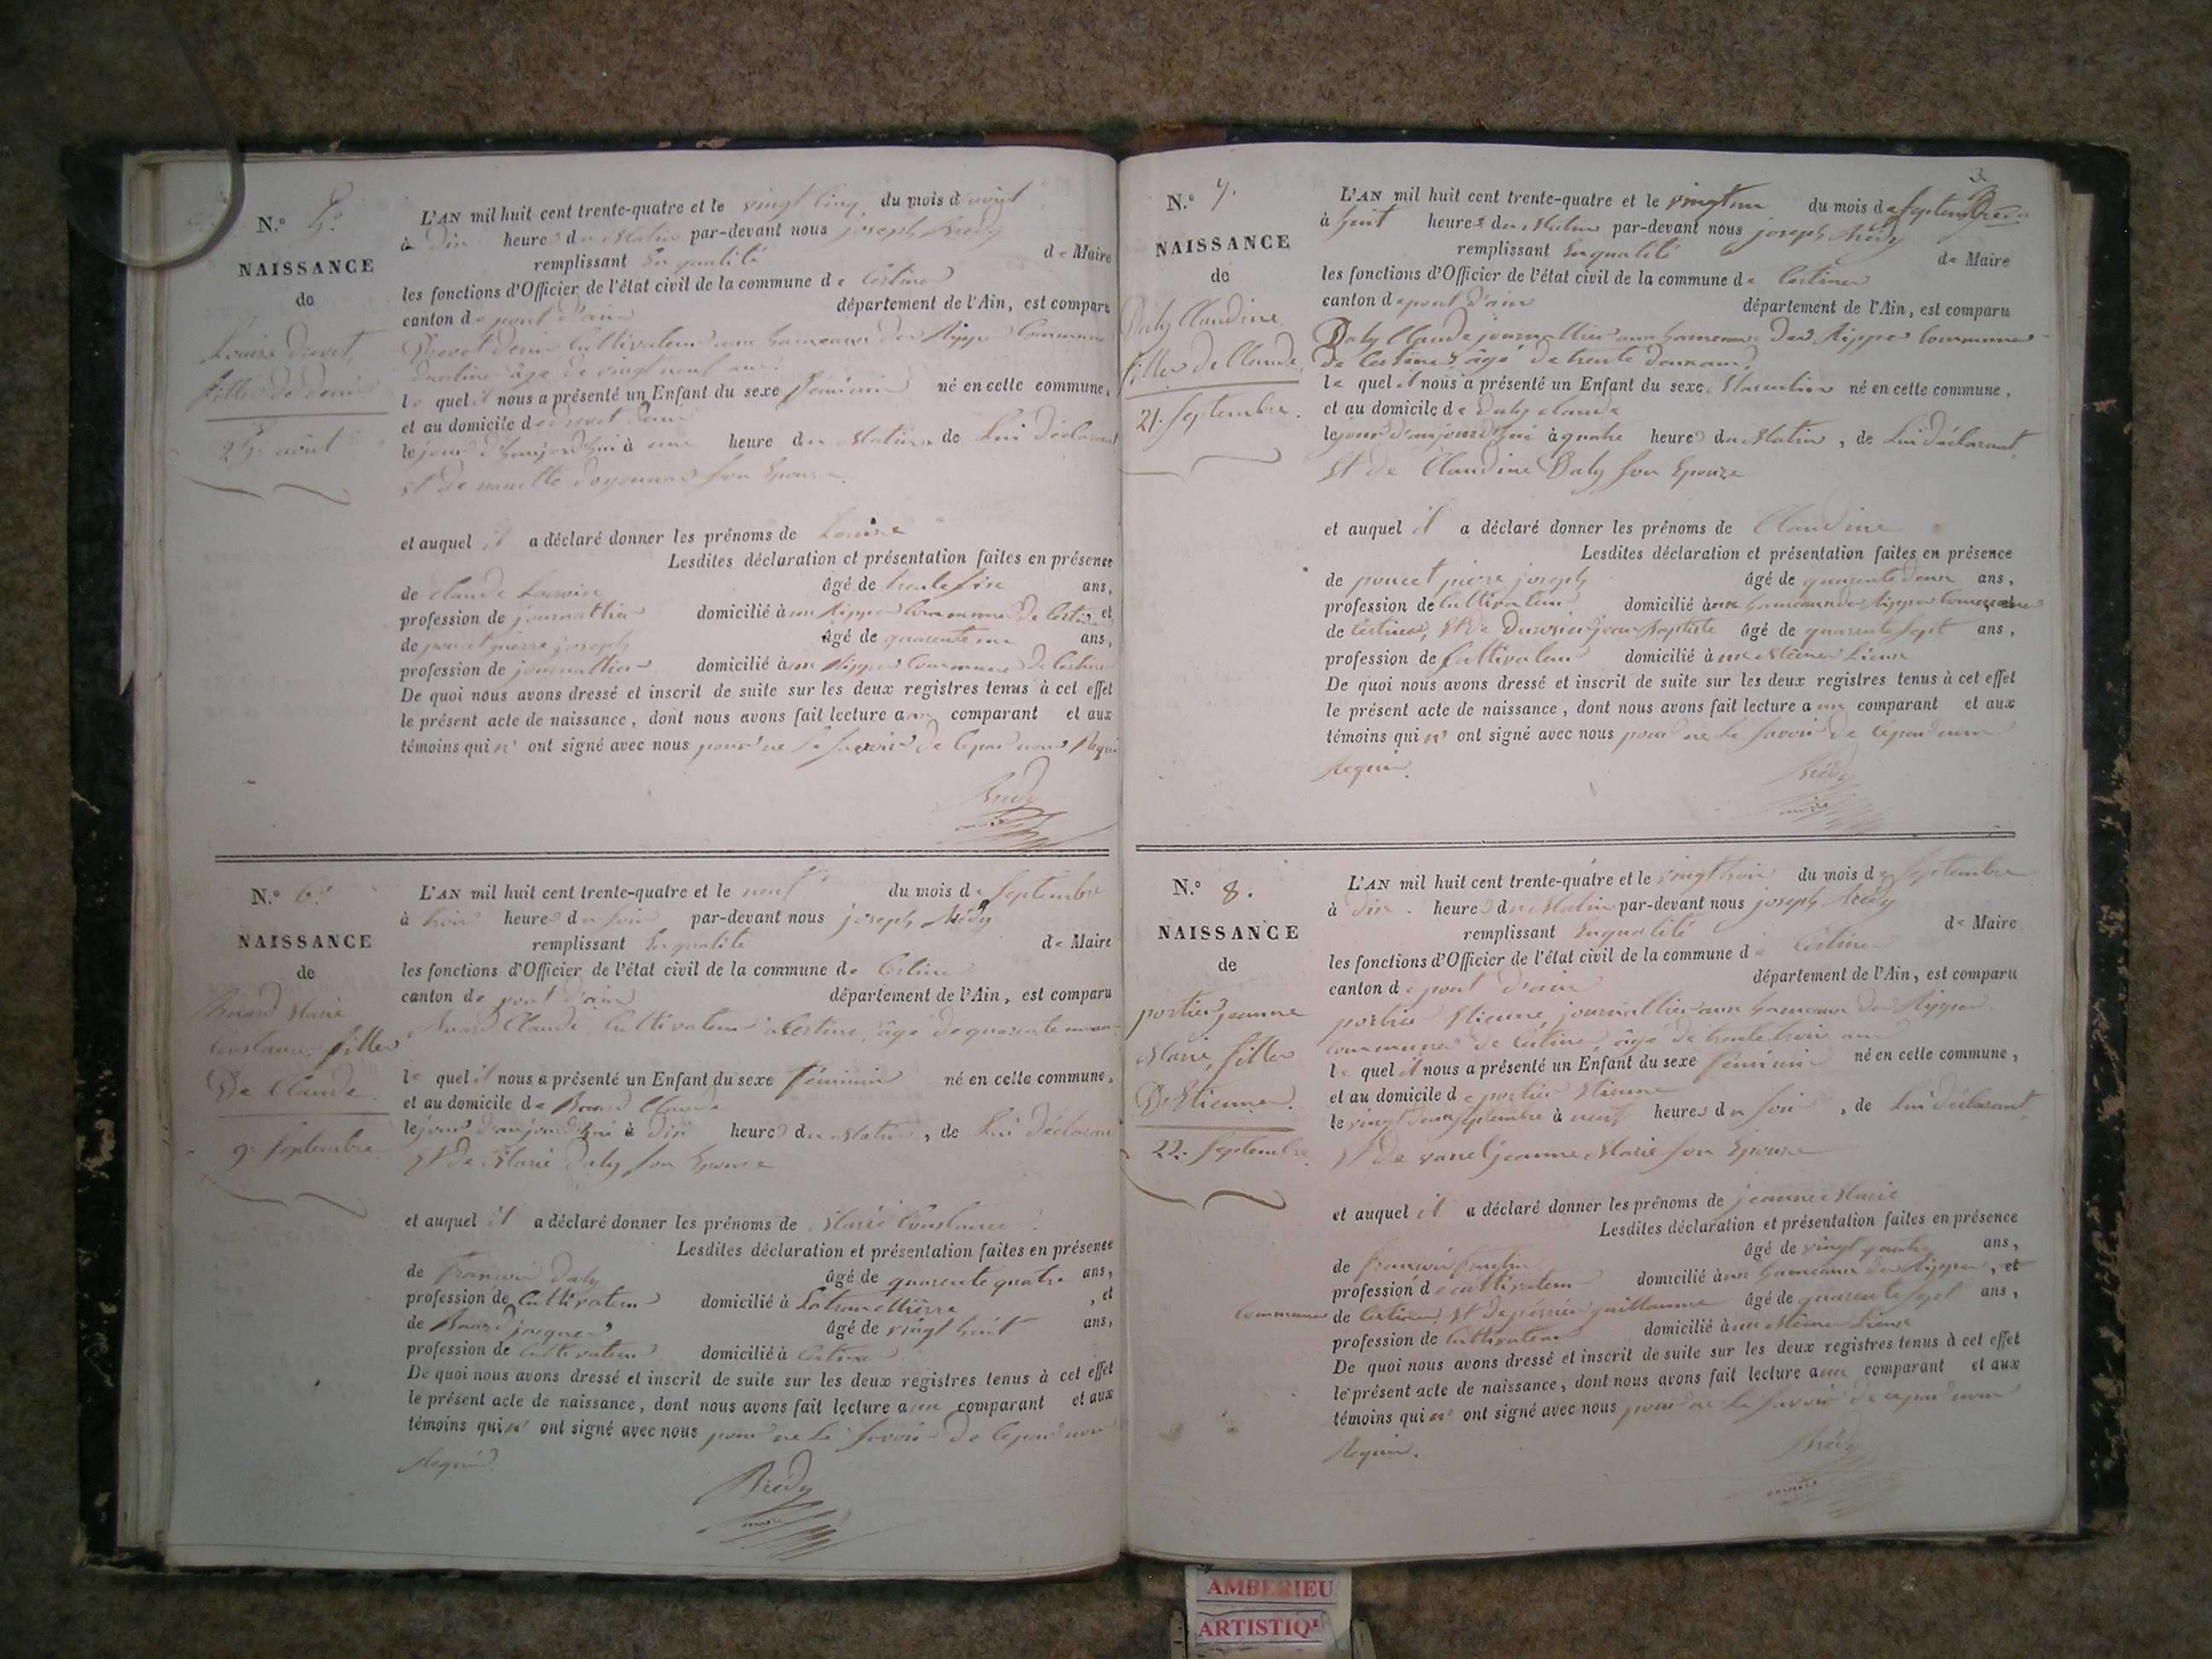 N.o 5.
NAISSANCE
de
Louise drevet,
fille de deni
25 août
L'AN mil huit cent trente-quatre et le vingt cinq du mois d août
à Dix heures du Matin par-devant nous joseph
remplissant En qualité de Maire
les fonctions d'Officier de l'état civil de la commune de Certines
canton de pont d'ain département de l'Ain, est comparu
Drevet deni Cultivateur aux hameaux des Rippes Commune
âgé de vingt neuf ans
le quel il nous a présenté un Enfant du sexe féminin né en cette commune,
et au domicile de drevet deni
le jour d'haujourdhui à une heure du Matin, de Lui déclarant
Et de son Epouse
et auquel il a déclaré donner les prénoms de Louise
Lesdites déclaration et présentation faites en présence
de Claude âgé de trente six ans,
profession de journallier domicilié à aux Rippes Commune de Certines et
de poncet pierre joseph âgé de quarente ans,
profession de journallier domicilié à aux Rippes Commune de Certines
De quoi nous avons dressé et inscrit de suite sur les deux registres tenus à cet effet
le présent acte de naissance, dont nous avons fait lecture au comparant et aux
témoins qui n' ont signé avec nous pour ne le savoir de ce par nous Requi
N.o 6.
NAISSANCE
de
Marie
Constance fille
De Claude
9 Septembre
L'AN mil huit cent trente-quatre et le neuf du mois de Septembre
à trois heures du soir par-devant nous joseph
remplissant En qualité de Maire
les fonctions d'Officier de l'état civil de la commune de Certines
canton de pont d'ain département de l'Ain, est comparu
Claude Cultivateur à Certines, âgé de quarente
le quel il nous a présenté un Enfant du sexe féminin né en cette commune,
et au domicile de Claude
le jour d'aujourdhui à dix heures du Matin, de Lui déclarant
Et de Marie Daly son Epouse
et auquel il a déclaré donner les prénoms de Marie Constance
Lesdites déclaration et présentation faites en présence
de François Daly âgé de quarente quatre ans,
profession de Cultivateur domicilié à , et
de jacques âgé de vingt huit ans,
profession de Cultivateur domicilié à Certines
De quoi nous avons dressé et inscrit de suite sur les deux registres tenus à cet effet
le présent acte de naissance, dont nous avons fait lecture au comparant et aux
témoins qui n' ont signé avec nous pour ne le savoir de ce par nous
Requi
N.o 7.
NAISSANCE
de
Daly Claudine
fille de Claude
21 Septembre.
L'AN mil huit cent trente-quatre et le vingt un du mois de Septembre
à huit heures du Matin par-devant nous joseph
remplissant En qualité de Maire
les fonctions d'Officier de l'état civil de la commune de Certines
canton de pont d'ain département de l'Ain, est comparu
Daly Claude journallier aux hameaux des Rippes Commune
de Certines âgé de trente deux ans,
le quel il nous a présenté un Enfant du sexe Masculin né en cette commune,
et au domicile de Daly Claude
le jour d'aujourdhui à quatre heures du Matin, de Lui déclarant
Et de Claudine Daly son Epouze
et auquel il a déclaré donner les prénoms de Claudine
Lesdites déclaration et présentation faites en présence
de poncet pierre joseph âgé de quarente deux ans,
profession de Cultivateur domicilié à aux hameaux des Rippes Commune
de Certines, Et de jean Baptiste âgé de quarente sept ans,
profession de Cultivateur domicilié à aux Mêmes Lieux
De quoi nous avons dressé et inscrit de suite sur les deux registres tenus à cet effet
le présent acte de naissance, dont nous avons fait lecture au comparant et aux
témoins qui n' ont signé avec nous pour ne le savoir de ce par nous
Requi
N.o 8.
NAISSANCE
de
portier jeanne
Marie, fille
D'Etienne.
22. Septembre
L'AN mil huit cent trente-quatre et le vingt trois du mois de Septembre
à dix heures du Matin par-devant nous joseph
remplissant En qualité de Maire
les fonctions d'Officier de l'état civil de la commune de Certines
canton de pont d'ain département de l'Ain, est comparu
portier Etienne, journallier aux hameaux des Rippes
Commune de Certines, âgé de trente trois ans
le quel il nous a présenté un Enfant du sexe féminin né en cette commune,
et au domicile de portier Etienne
le vingt deux Septembre à neuf heures du soir, de Lui déclarant
Et de jeanne Marie son Epouse
et auquel il a déclaré donner les prénoms de jeanne Marie
Lesdites déclaration et présentation faites en présence
de François âgé de vingt quatre ans,
profession de cultivateur domicilié à aux hameaux des Rippes, et
Commune de Certines Et de guillaume âgé de quarente sept ans,
profession de Cultivateur domicilié à aux Mêmes Lieux
De quoi nous avons dressé et inscrit de suite sur les deux registres tenus à cet effet
le présent acte de naissance, dont nous avons fait lecture au comparant et aux
témoins qui n' ont signé avec nous pour ne le savoir de ce par nous
Requi.
AMBERIEU
ARTISTIQ